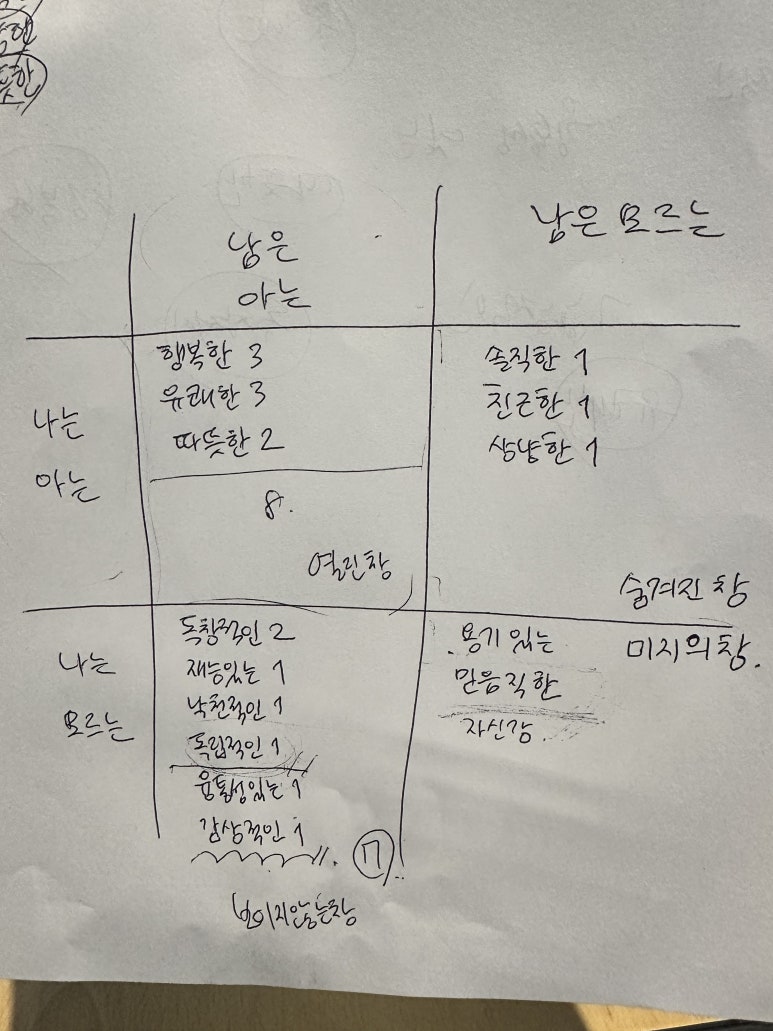 남은
아는
남은 모르는
나는
아는
행복한 3
유쾌한 3
따뜻한 2
8.
열린창
솔직한 1
친근한 1
상냥한 1
숨겨진 창
나는
모르는
독창적인 2
재능있는 1
낙천적인 1
독립적인 1
융통성있는 1
감상적인 1
7
보이지않는창
용기 있는
믿음직한
자신감
미지의창.